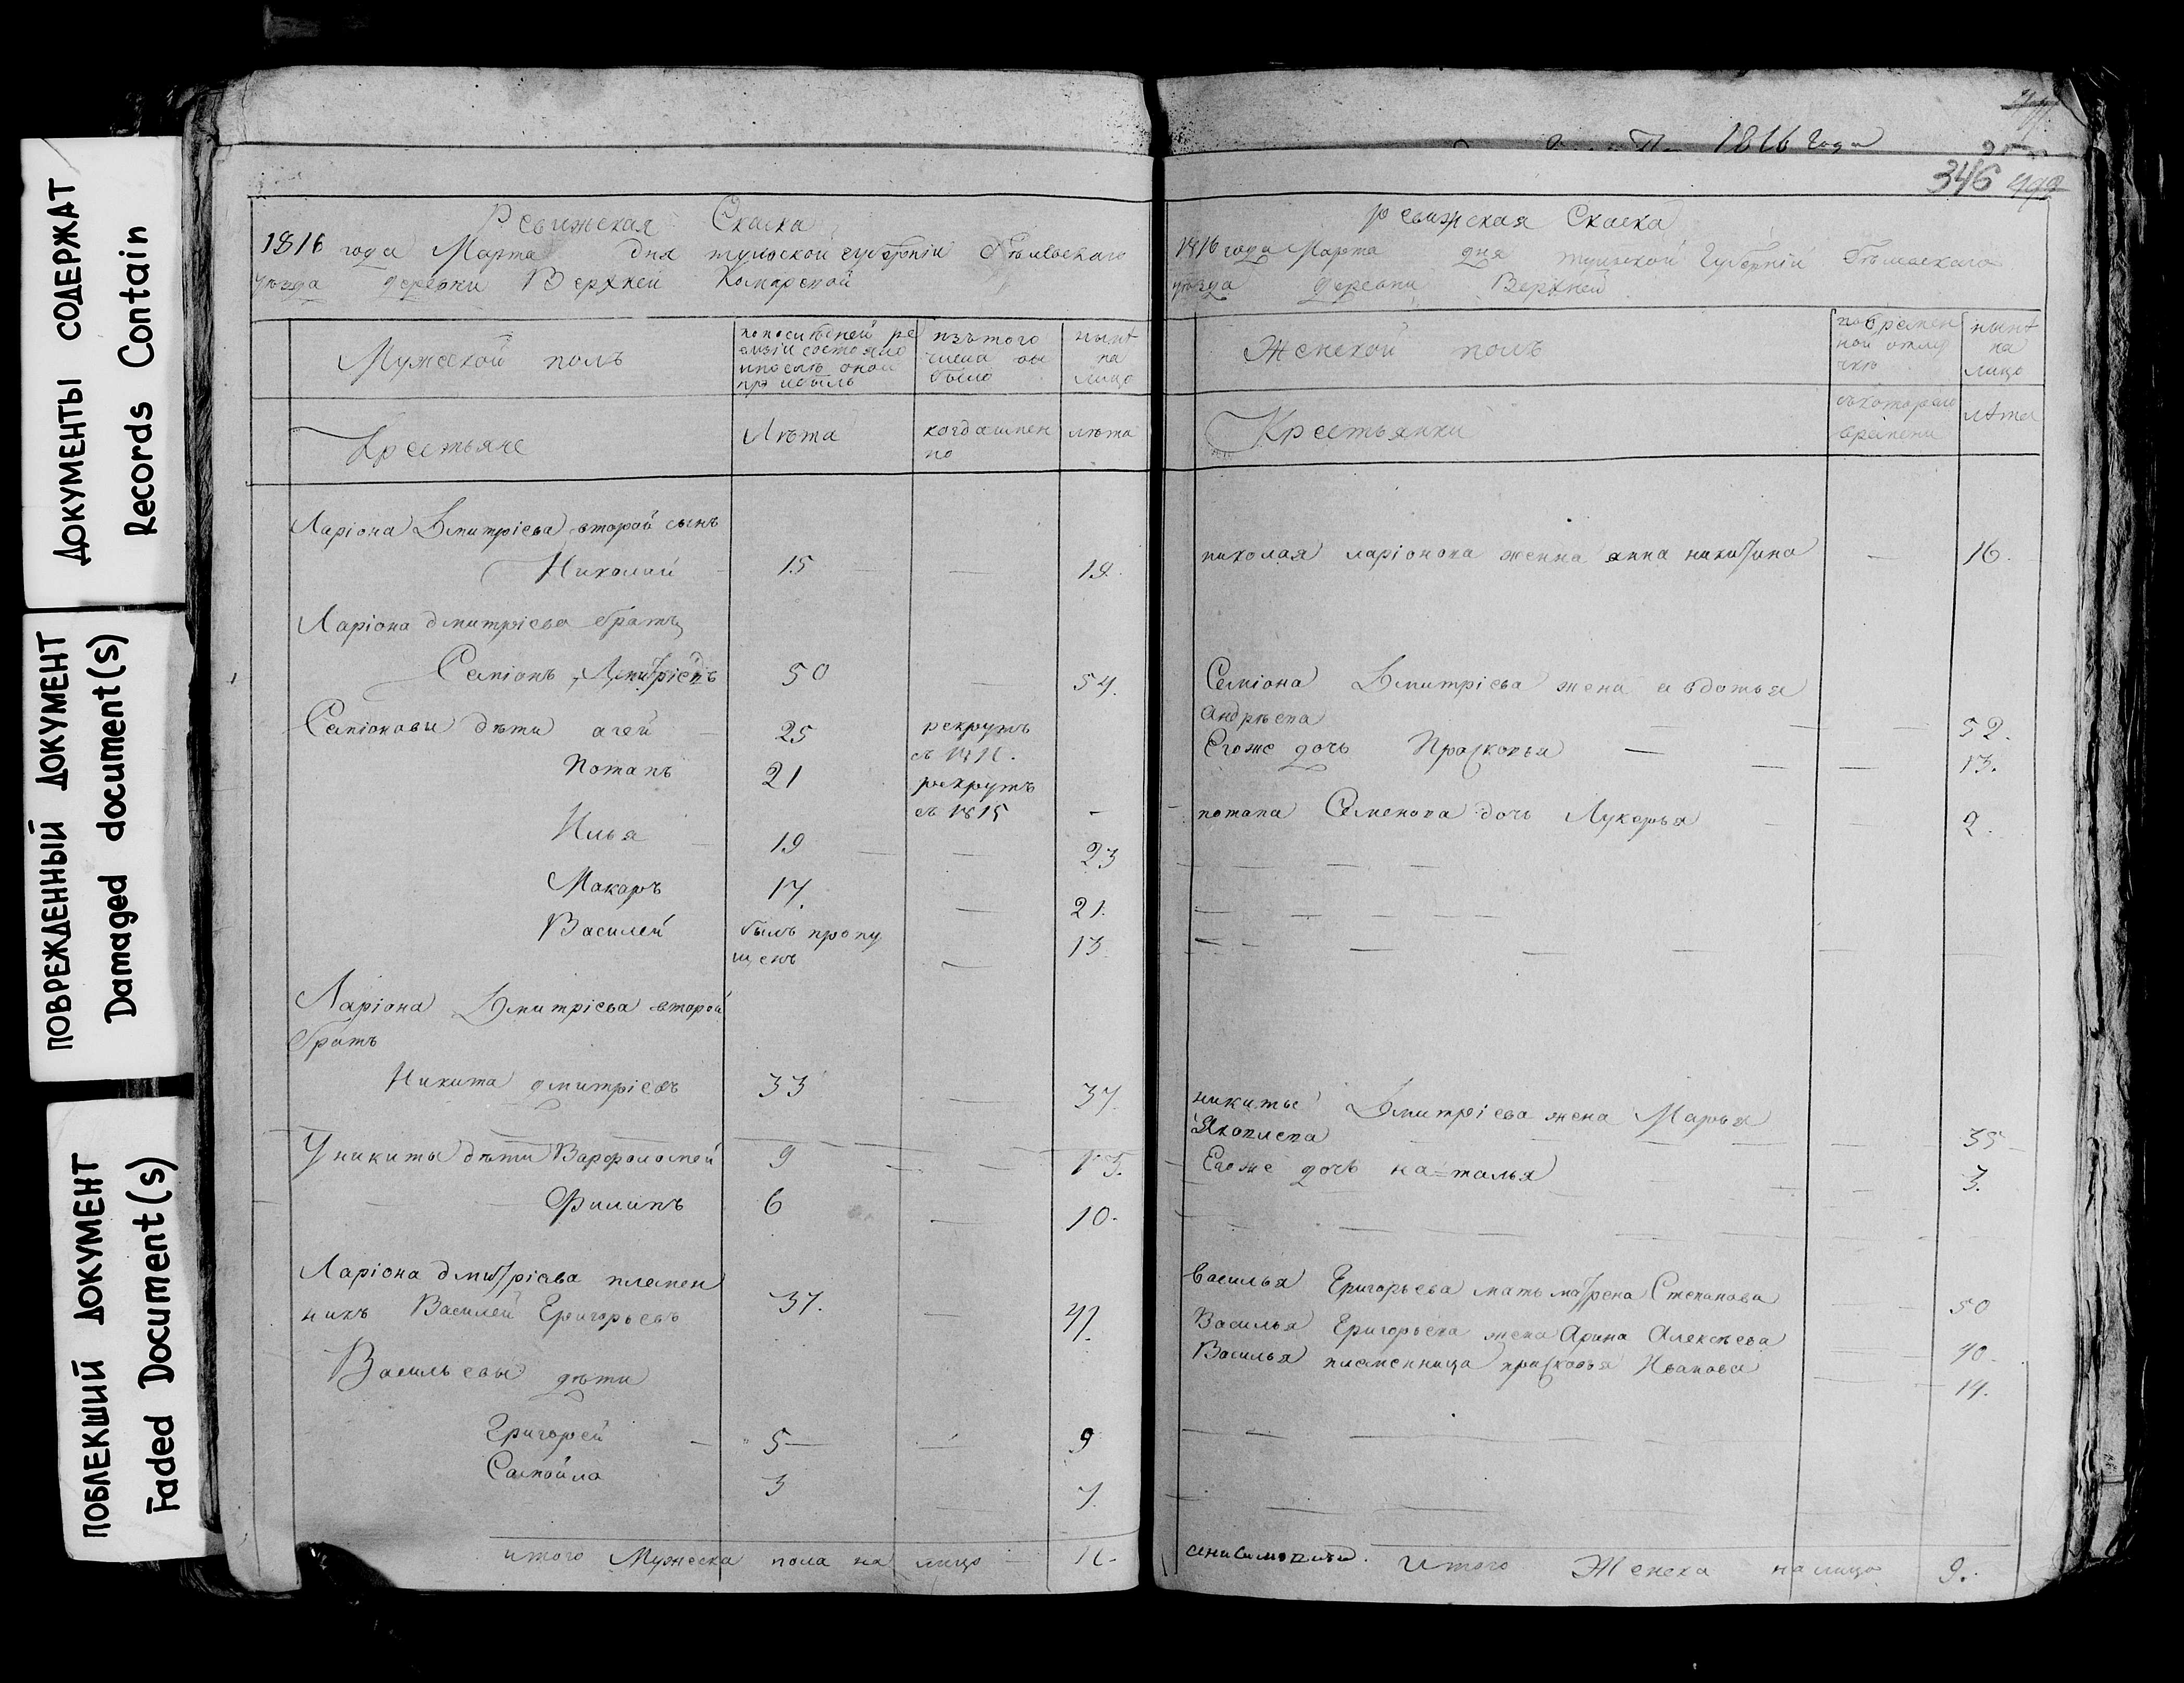 ДОКУМЕНТЫ СОДЕРЖАТ
Records Contain
ПОВРЕЖДЕННЫЙ ДОКУМЕНТ
Damaged document(s)
ПОБЛЕКШИЙ ДОКУМЕНТ
Faded Document(s)
Ревижская Скаска
1816 года Марта дня тульской губерніи Бѣлевскаго
уѣзда деревни Верхней
Мужеской полъ
попослѣдней ре
визіи состояло
ипослѣ оной
прибыло
изътого
числа вы
было
нынѣ
на
лицо
Крестьяне
Лѣта
когдаимен
но
лѣта
Ларіона Дмитріева второй сынъ
Николай 15 — 19.
Ларіона дмитріева братъ
Семіонъ Дмитріевъ 50 — 54.
Семіоновы дѣти агей 25 рекрутъ
Потапъ 21 рекрутъ
въ 1815 —
Илья 19 — 23
Макаръ 17. — 21.
Василей былъ пропу
щенъ — 13
Ларіона Дмитріева второй
братъ
Никита дмитріевъ 33 — 37.
У никиты дѣти Варфоломей 9 — 13.
Филипъ 6 — 10.
Ларіона дмитріева племен
никъ Василей Григорьевъ 37. — 41.
Васильевы дѣти
Григорей 5 — 9
Самойла 3 — 7.
итого Мужеска пола на лицо 11.
1816 Года
346
Ревижская Скаска
1816 года Марта дня тульской Губерніи Бѣлевскаго
уѣзда деревни Верхней
Женской полъ
вовремен
ной отлу
чкѣ
нынѣ
на
лицо
Крестьянки
съкотораго
времени
лѣта
николая ларіонова женна анна никитина — 16.
Семіона Дмитріева жена авдотья
андрѣева — 52.
Егоже дочь Прасковья — 13.
потапа Семенова дочь Лукерья 2.
никиты Дмитріева жена Марья
Яковлева — 35
Егоже дочь на=талья 3.
Василья Григорьева мать матрена Степанова 50
Василья Григорьева жена Арина Алексѣева 40.
Василья племенница прасковья Иванова 14.
Итого Женска налицо 9.